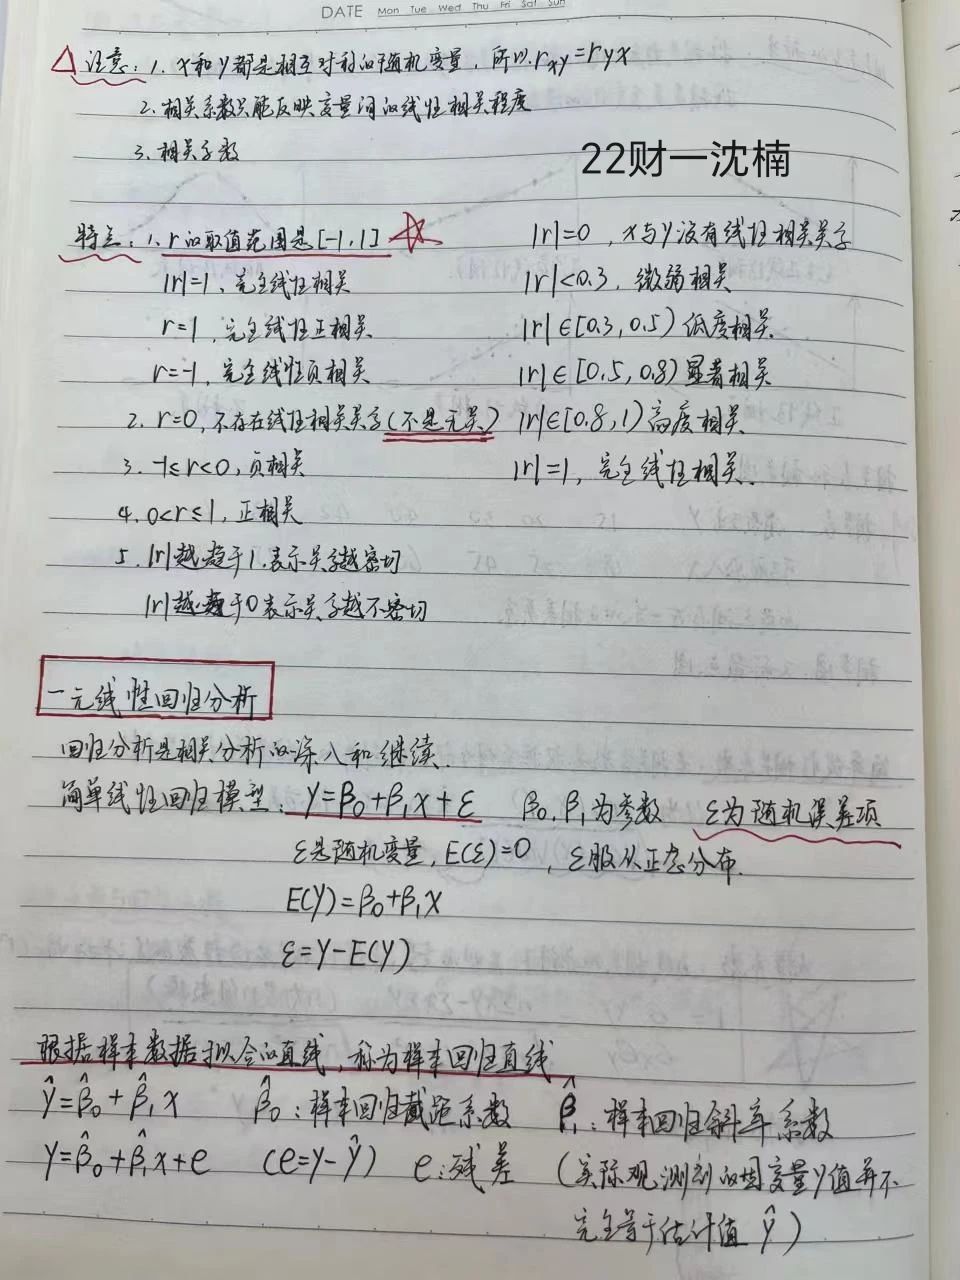 DATE Mon Tue Wed Thu Fri Sat Sun
△注意：1. x和y都是相互对称的随机变量，所以rxy=ryx
2. 相关系数只能反映变量间的线性相关程度
3. 相关系数
22财一沈楠
特点：1. r的取值范围是[-1,1]
|r|=1，完全线性相关
r=1，完全线性正相关
r=-1，完全线性负相关
2. r=0，不存在线性相关关系(不是无关)
3. -1≤r<0，负相关
4. 0<r≤1，正相关
5. |r|越趋于1，表示关系越密切
|r|越趋于0表示关系越不密切
|r|=0，x与y没有线性相关关系
|r|<0.3，微弱相关
|r|∈[0.3,0.5) 低度相关
|r|∈[0.5,0.8) 显著相关
|r|∈[0.8,1) 高度相关
|r|=1，完全线性相关.
一元线性回归分析
回归分析是相关分析的深入和继续.
简单线性回归模型：y=β₀+β₁x+ε β₀,β₁为参数 ε为随机误差项
ε是随机变量，E(ε)=0，ε服从正态分布.
E(y)=β₀+β₁x
ε=y-E(y)
根据样本数据拟合的直线，称为样本回归直线
ŷ=β̂₀+β̂₁x β̂₀：样本回归截距系数 β̂₁：样本回归斜率系数
y=β̂₀+β̂₁x+e (e=y-ŷ) e:残差 (实际观测到的因变量y值并不
完全等于估计值ŷ)